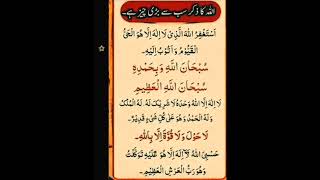 اللہ کا ذکر سب سے بڑی چیز ہے۔
اَسْتَغْفِرُ اللهَ الَّذِيْ لَا اِلٰهَ اِلَّا هُوَ الْحَيُّ
الْقَيُّوْمُ وَ اَتُوْبُ اِلَيْهِ۔
سُبْحَانَ اللّٰهِ وَبِحَمْدِهٖ
سُبْحَانَ اللّٰهِ الْعَظِيْمِ
لَا اِلٰهَ اِلَّا اللهُ وَحْدَهٗ لَا شَرِيْكَ لَهٗ، لَهُ الْمُلْكُ
وَ لَهُ الْحَمْدُ وَ هُوَ عَلٰى كُلِّ شَيْءٍ قَدِيْرٌ۔
لَا حَوْلَ وَلَا قُوَّةَ اِلَّا بِاللّٰهِ۔
حَسْبِيَ اللهُ لَآ اِلٰهَ اِلَّا هُوَ عَلَيْهِ تَوَكَّلْتُ
وَهُوَ رَبُّ الْعَرْشِ الْعَظِيْمِ۔